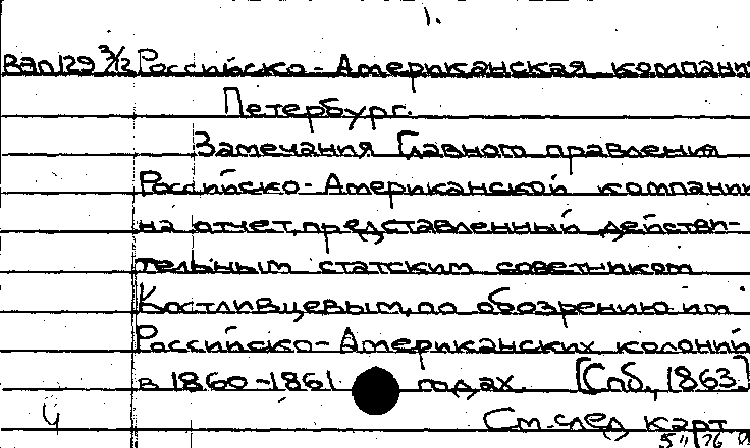 1.
Российско-Американская компани
Петербург.
Замечания Главного правления
Российско-Американской компании
на отчет, представленный действи-
тельным статским советником
Костливцевым, по обозрению им
Российско-Американских колоний
в 1860-1861 годах. [Спб., 1863]
См. след карт